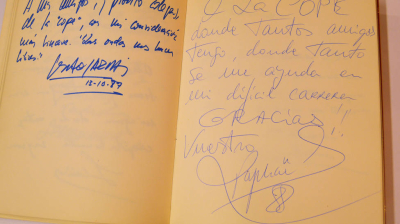 A mis amigos, y
de la "cope", con mi consideración
más sincera. Las ondas nos hacen
libres.
12-10-87
A La COPE
donde tantos amigos
tengo, donde tanto
se me ayuda en
mi difícil carrera
GRACIAS!!
Vuestro
Raphael
88